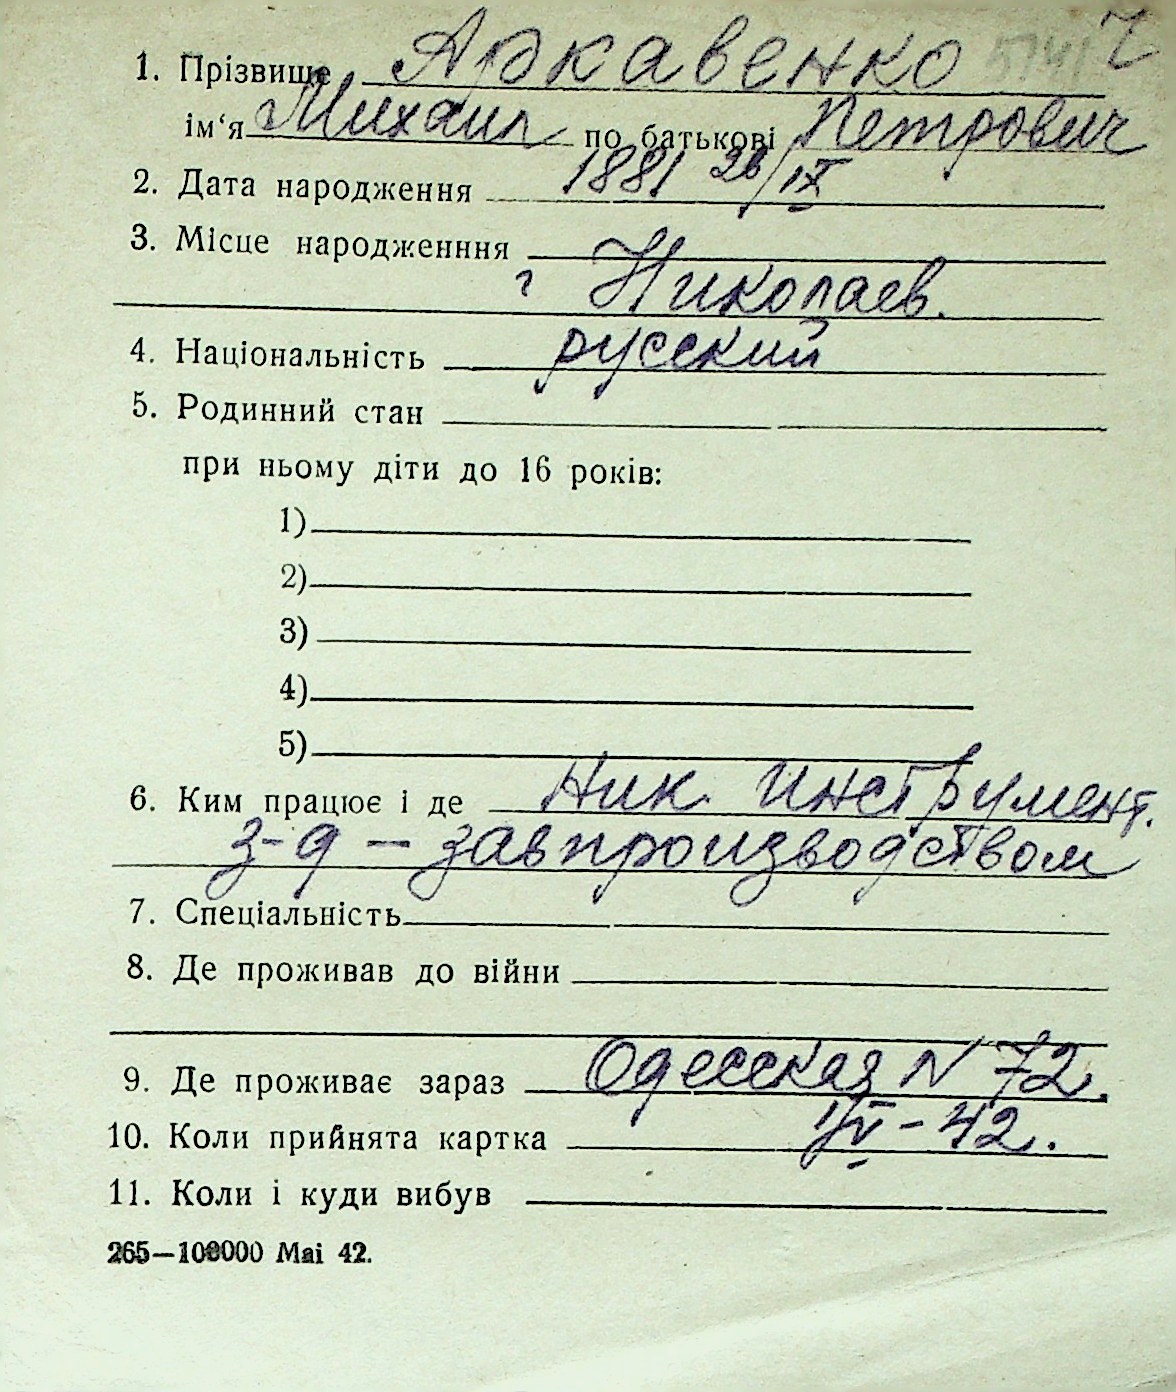 1. Прізвище Аркавенко
ім‘я Михаил по батькові Петрович
2. Дата народження 1881 26/IX
3. Місце народженння
г Николаев.
4. Національність русский
5. Родинний стан
при ньому діти до 16 років:
1)
2)
3)
4)
5)
6. Ким працює і де Ник. инструмент.
з-д — завпроизводством
7. Спеціальність
8. Де проживав до війни
9. Де проживає зараз Одесская N 72.
10. Коли прийнята картка 1/V – 42.
11. Коли і куди вибув
265—100000 Mai 42.